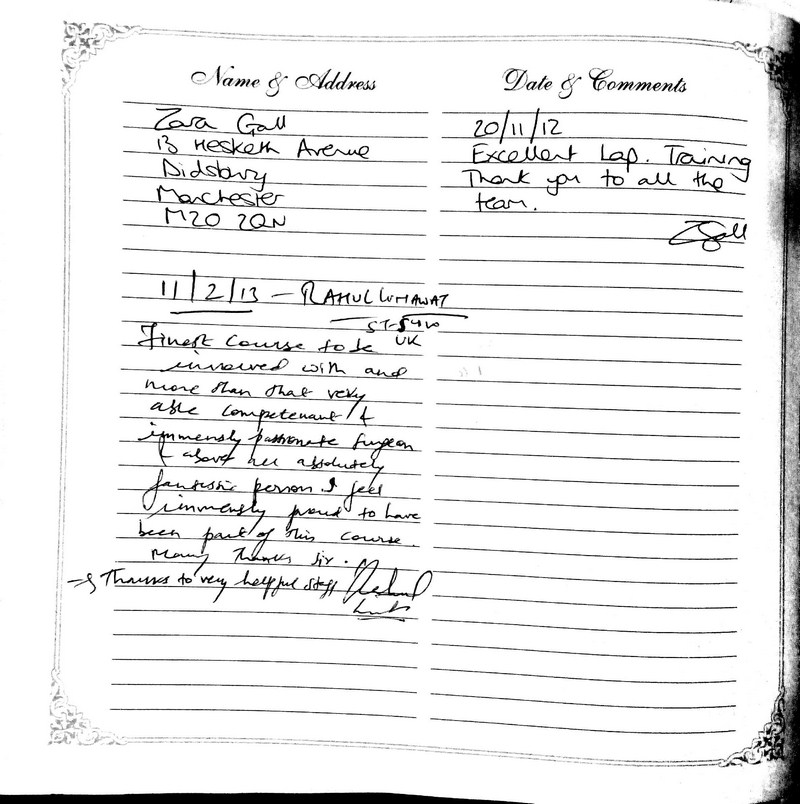 Name & Address
Date & Comments
Zara Gall
13 Hesketh Avenue
Didsbury
Manchester
M20 2QN
20/11/12
Excellent Lap. Training
Thank you to all the
team.
ZGall
11/2/13 - RAHUL LUNAWAT
UK
Finest Course to be
involved with and
more than that very
able competenant &
immensly passionate surgeon
& above all absolutely
fantastic person I feel
immensly proud to have
been part of this course.
Many Thanks Sir.
→ Thanks to very helpful staff